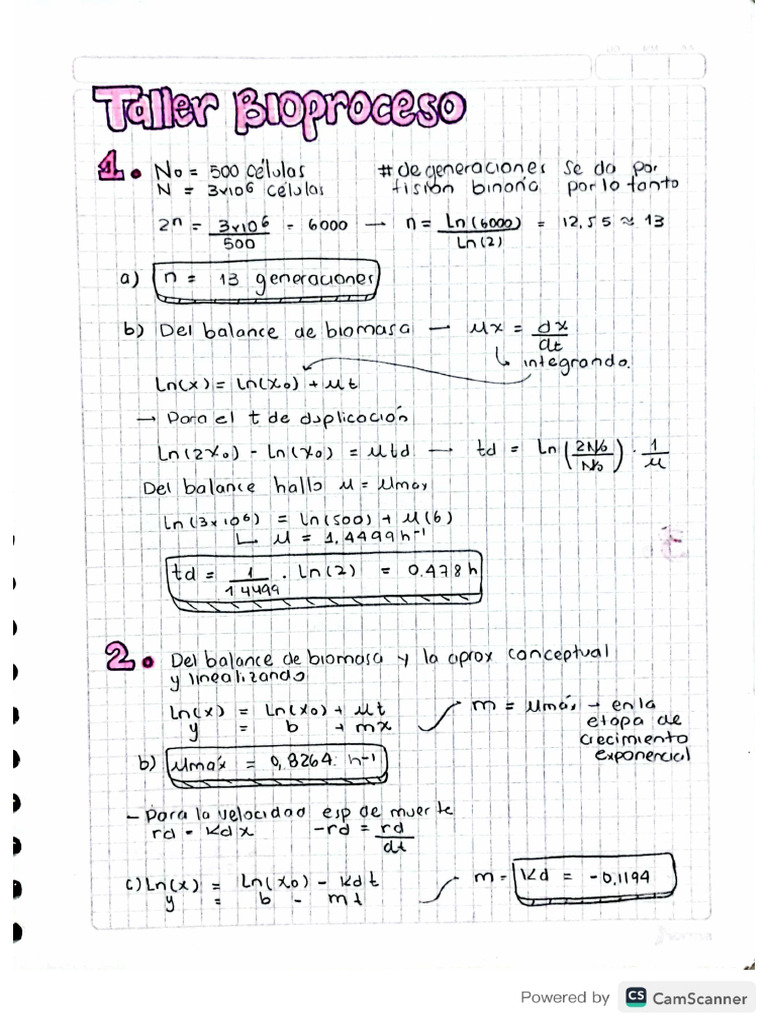 Taller Bioproceso
1. No = 500 células # de generaciones se da por
N = 3x10⁶ células fisión binaria por lo tanto
2ⁿ = 3x10⁶/500 = 6000 → n = Ln(6000)/Ln(2) = 12,55 ≈ 13
a) n = 13 generaciones
b) Del balance de biomasa — μx = dx/dt
↳ integrando.
Ln(x) = Ln(x₀) + μt
→ Para el t de duplicación
Ln(2x₀) - Ln(x₀) = μtd → td = Ln(2N₀/N₀) · 1/μ
Del balance hallo μ = μmax
Ln(3x10⁶) = Ln(500) + μ(6)
↳ μ = 1,4499 h⁻¹
td = 1/1,4499 · Ln(2) = 0.478 h
2. Del balance de biomasa y la aprox conceptual
y linealizando
Ln(x) = Ln(x₀) + μt m = μmáx → en la
y = b + mx etapa de
crecimiento
exponencial
b) μmáx = 0,8264 h⁻¹
- Para la velocidad esp de muerte
rd = Kd x -rd = rd/dt
c) Ln(x) = Ln(x₀) - Kd t m = Kd = -0,1194
y = b - mt
norma
Powered by CS CamScanner